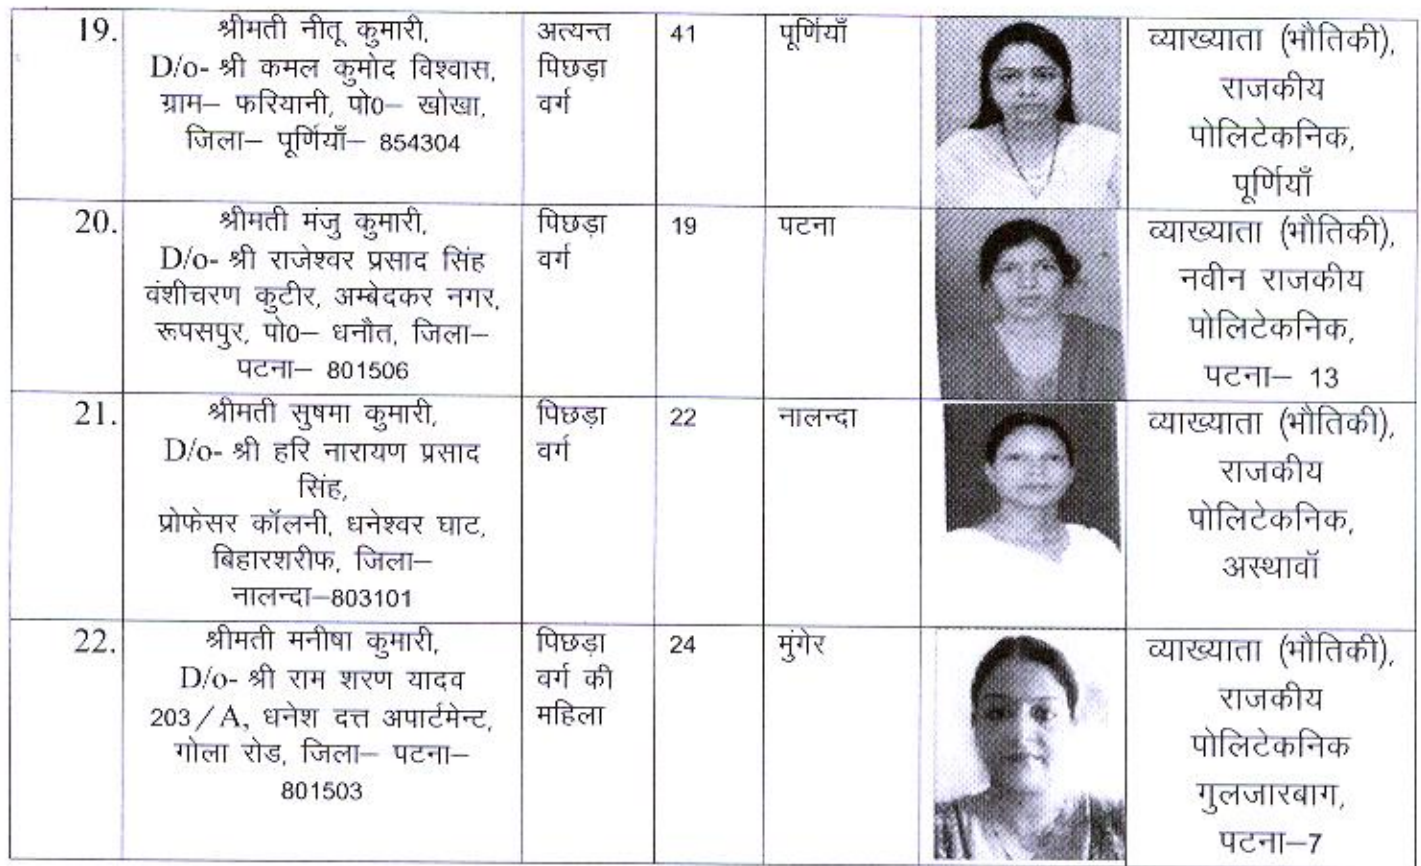 19.
श्रीमती नीतू कुमारी,
D/o- श्री कमल कुमोद विश्वास,
ग्राम– फरियानी, पो0– खोखा,
जिला– पूर्णियाँ– 854304
अत्यन्त
पिछड़ा
वर्ग
41
पूर्णियाँ
व्याख्याता (भौतिकी),
राजकीय
पोलिटेकनिक,
पूर्णियाँ
20.
श्रीमती मंजु कुमारी,
D/o- श्री राजेश्वर प्रसाद सिंह
वंशीचरण कुटीर, अम्बेदकर नगर,
रूपसपुर, पो0– धनौत, जिला–
पटना– 801506
पिछड़ा
वर्ग
19
पटना
व्याख्याता (भौतिकी),
नवीन राजकीय
पोलिटेकनिक,
पटना– 13
21.
श्रीमती सुषमा कुमारी,
D/o- श्री हरि नारायण प्रसाद
सिंह,
प्रोफेसर कॉलनी, धनेश्वर घाट,
बिहारशरीफ, जिला–
नालन्दा–803101
पिछड़ा
वर्ग
22
नालन्दा
व्याख्याता (भौतिकी),
राजकीय
पोलिटेकनिक,
अस्थावॉ
22.
श्रीमती मनीषा कुमारी,
D/o- श्री राम शरण यादव
203/A, धनेश दत्त अपार्टमेन्ट,
गोला रोड, जिला– पटना–
801503
पिछड़ा
वर्ग की
महिला
24
मुंगेर
व्याख्याता (भौतिकी),
राजकीय
पोलिटेकनिक
गुलजारबाग,
पटना–7